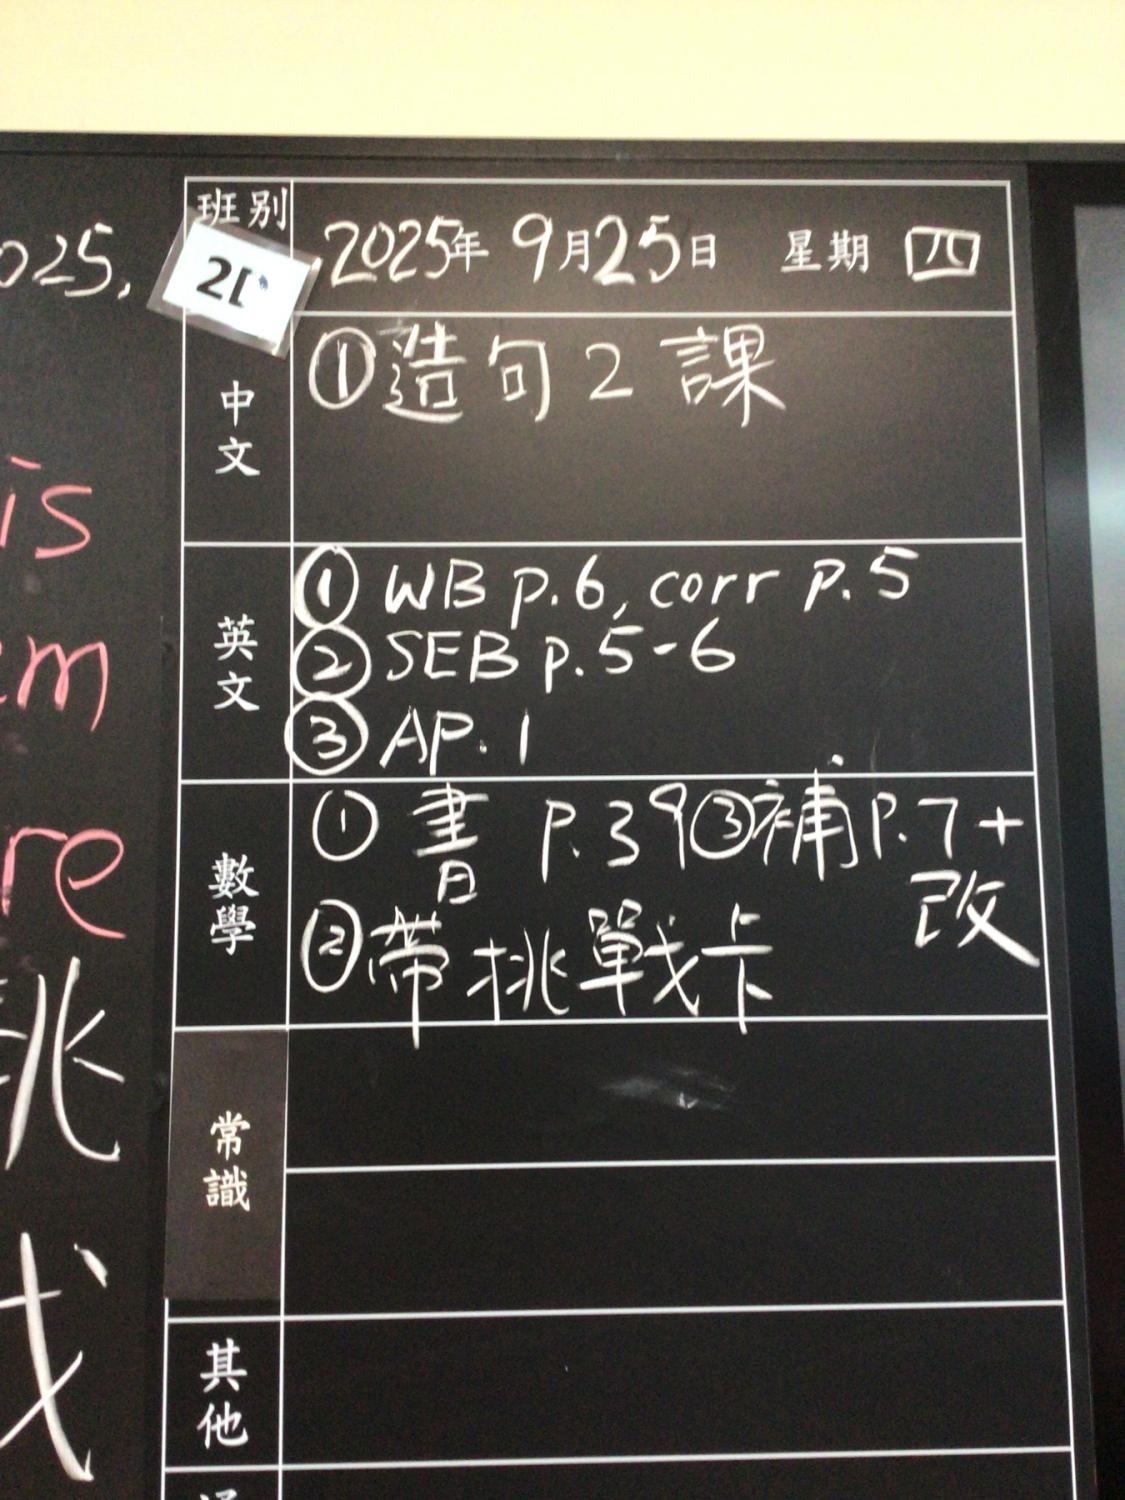 班別 2D 2025年 9月25日 星期 四
中文
①造句2課
英文
① WB p.6, corr p.5
② SEB p.5-6
③ AP.1
數學
① 書 P.39 ③補P.7+改
②帶挑戰卡
常識
其他
025,
is
em
re
挑
戈